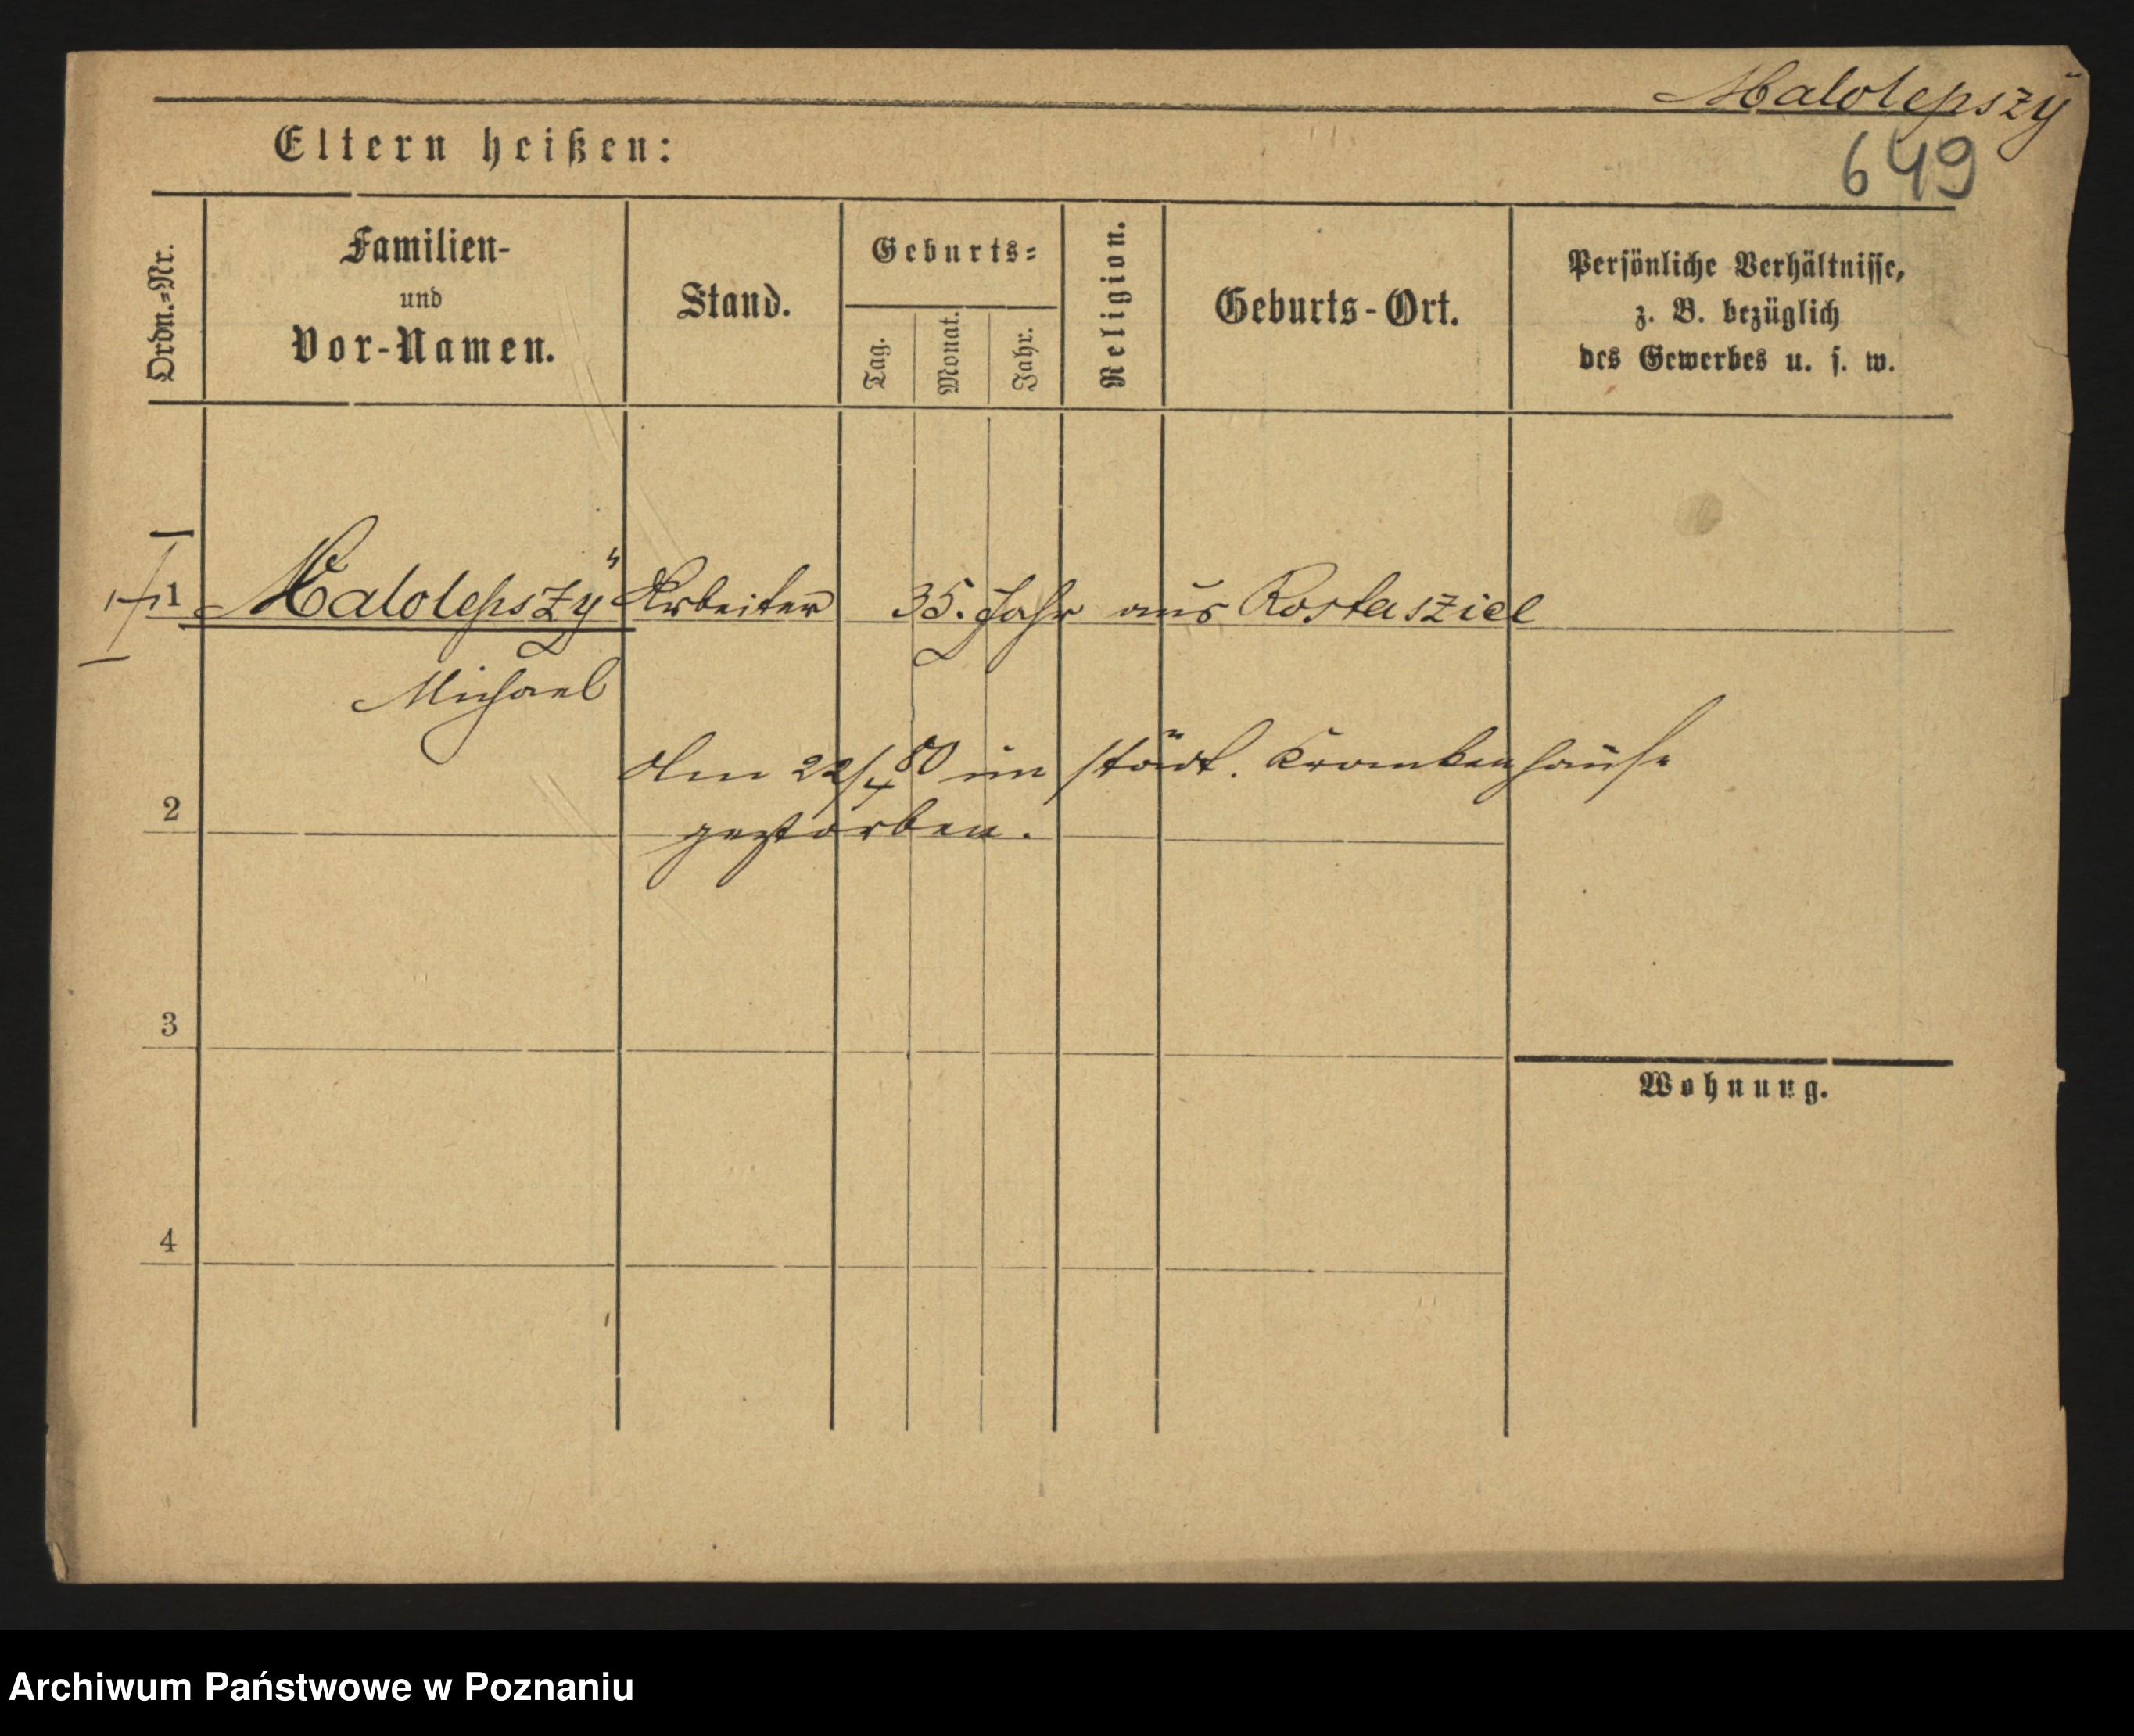 Malolepszÿ
649
Eltern heißen:
Ordn.-Nr.
Familien-
und
Vor-Namen.
Stand.
Geburts-
Tag.
Monat.
Jahr.
Religion.
Geburts-Ort.
Persönliche Verhältnisse,
z. B. bezüglich
des Gewerbes u. s. w.
1 Malolepszÿ Arbeiter 35. Jahr aus Rostasziel
Michael
Am 22/4 80 im städt. Krankenhause
2
gestorben.
3
Wohnung.
4
Archiwum Państwowe w Poznaniu